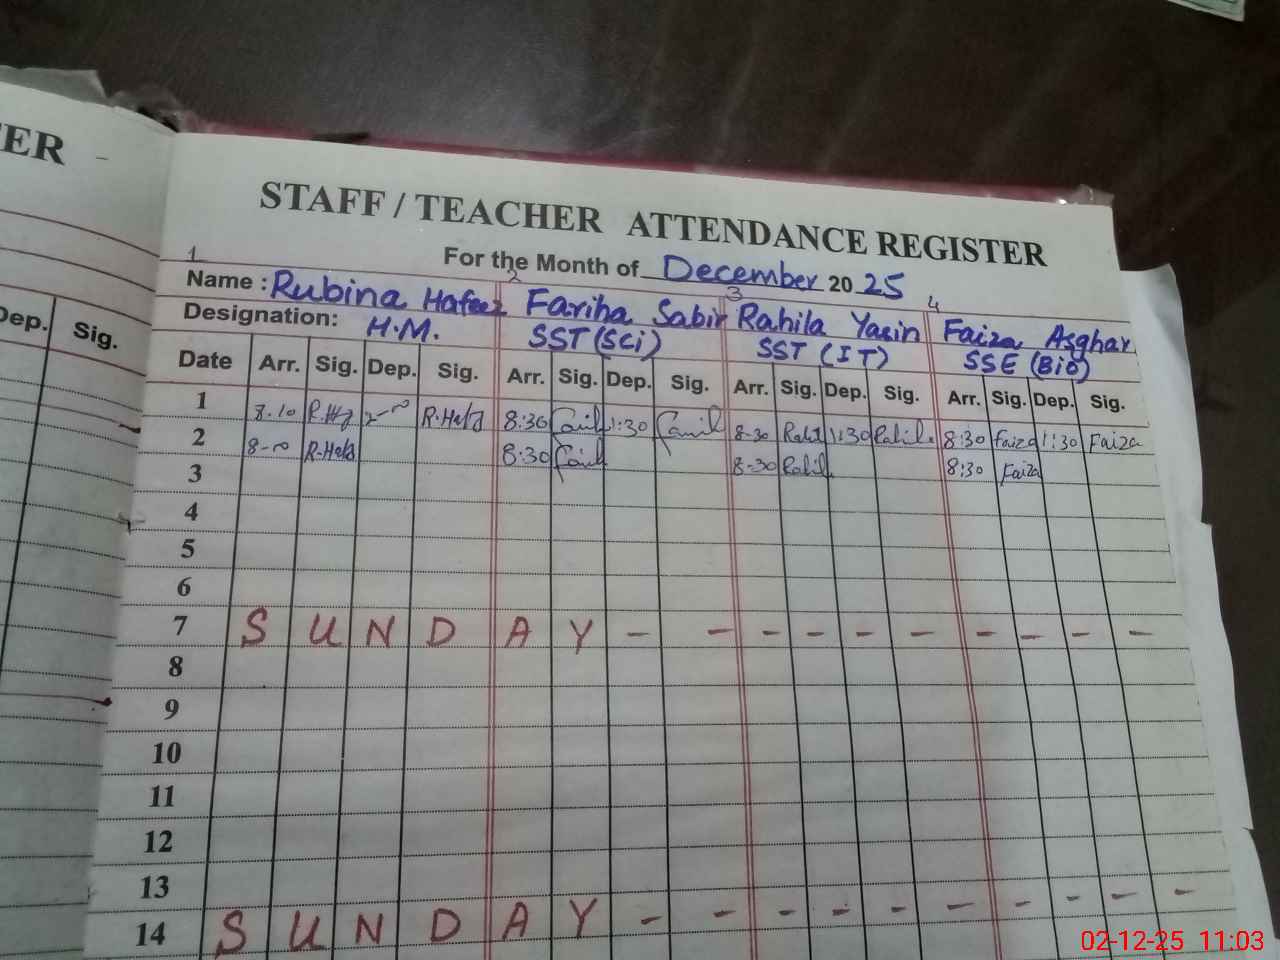 ER
STAFF / TEACHER ATTENDANCE REGISTER
For the Month of December 2025
1 2 3 4
Name : Rubina Hafeez Fariha Sabir Rahila Yasin Faiza Asghar
Designation: H.M. SST (Sci) SST (IT) SSE (Bio)
Dep. Sig.
Date Arr. Sig. Dep. Sig. Arr. Sig. Dep. Sig. Arr. Sig. Dep. Sig. Arr. Sig. Dep. Sig.
1 8.10 8:30 1:30 8-30 1:30 8:30 Faiza 1:30 Faiza
2 8-00 8:30 8-30 8:30 Faiza
3
4
5
6
7 S U N D A Y - - - - - - - - - -
8
9
10
11
12
13
14 S U N D A Y - - - - - - - - - -
02-12-25 11:03